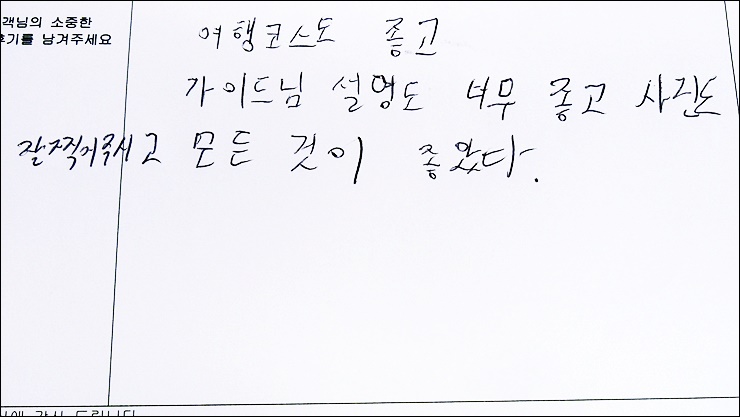 객님의 소중한
후기를 남겨주세요
여행코스도 좋고
가이드님 설명도 너무 좋고 사진도
잘찍어주시고 모든 것이 좋았다.
감사 드립니다